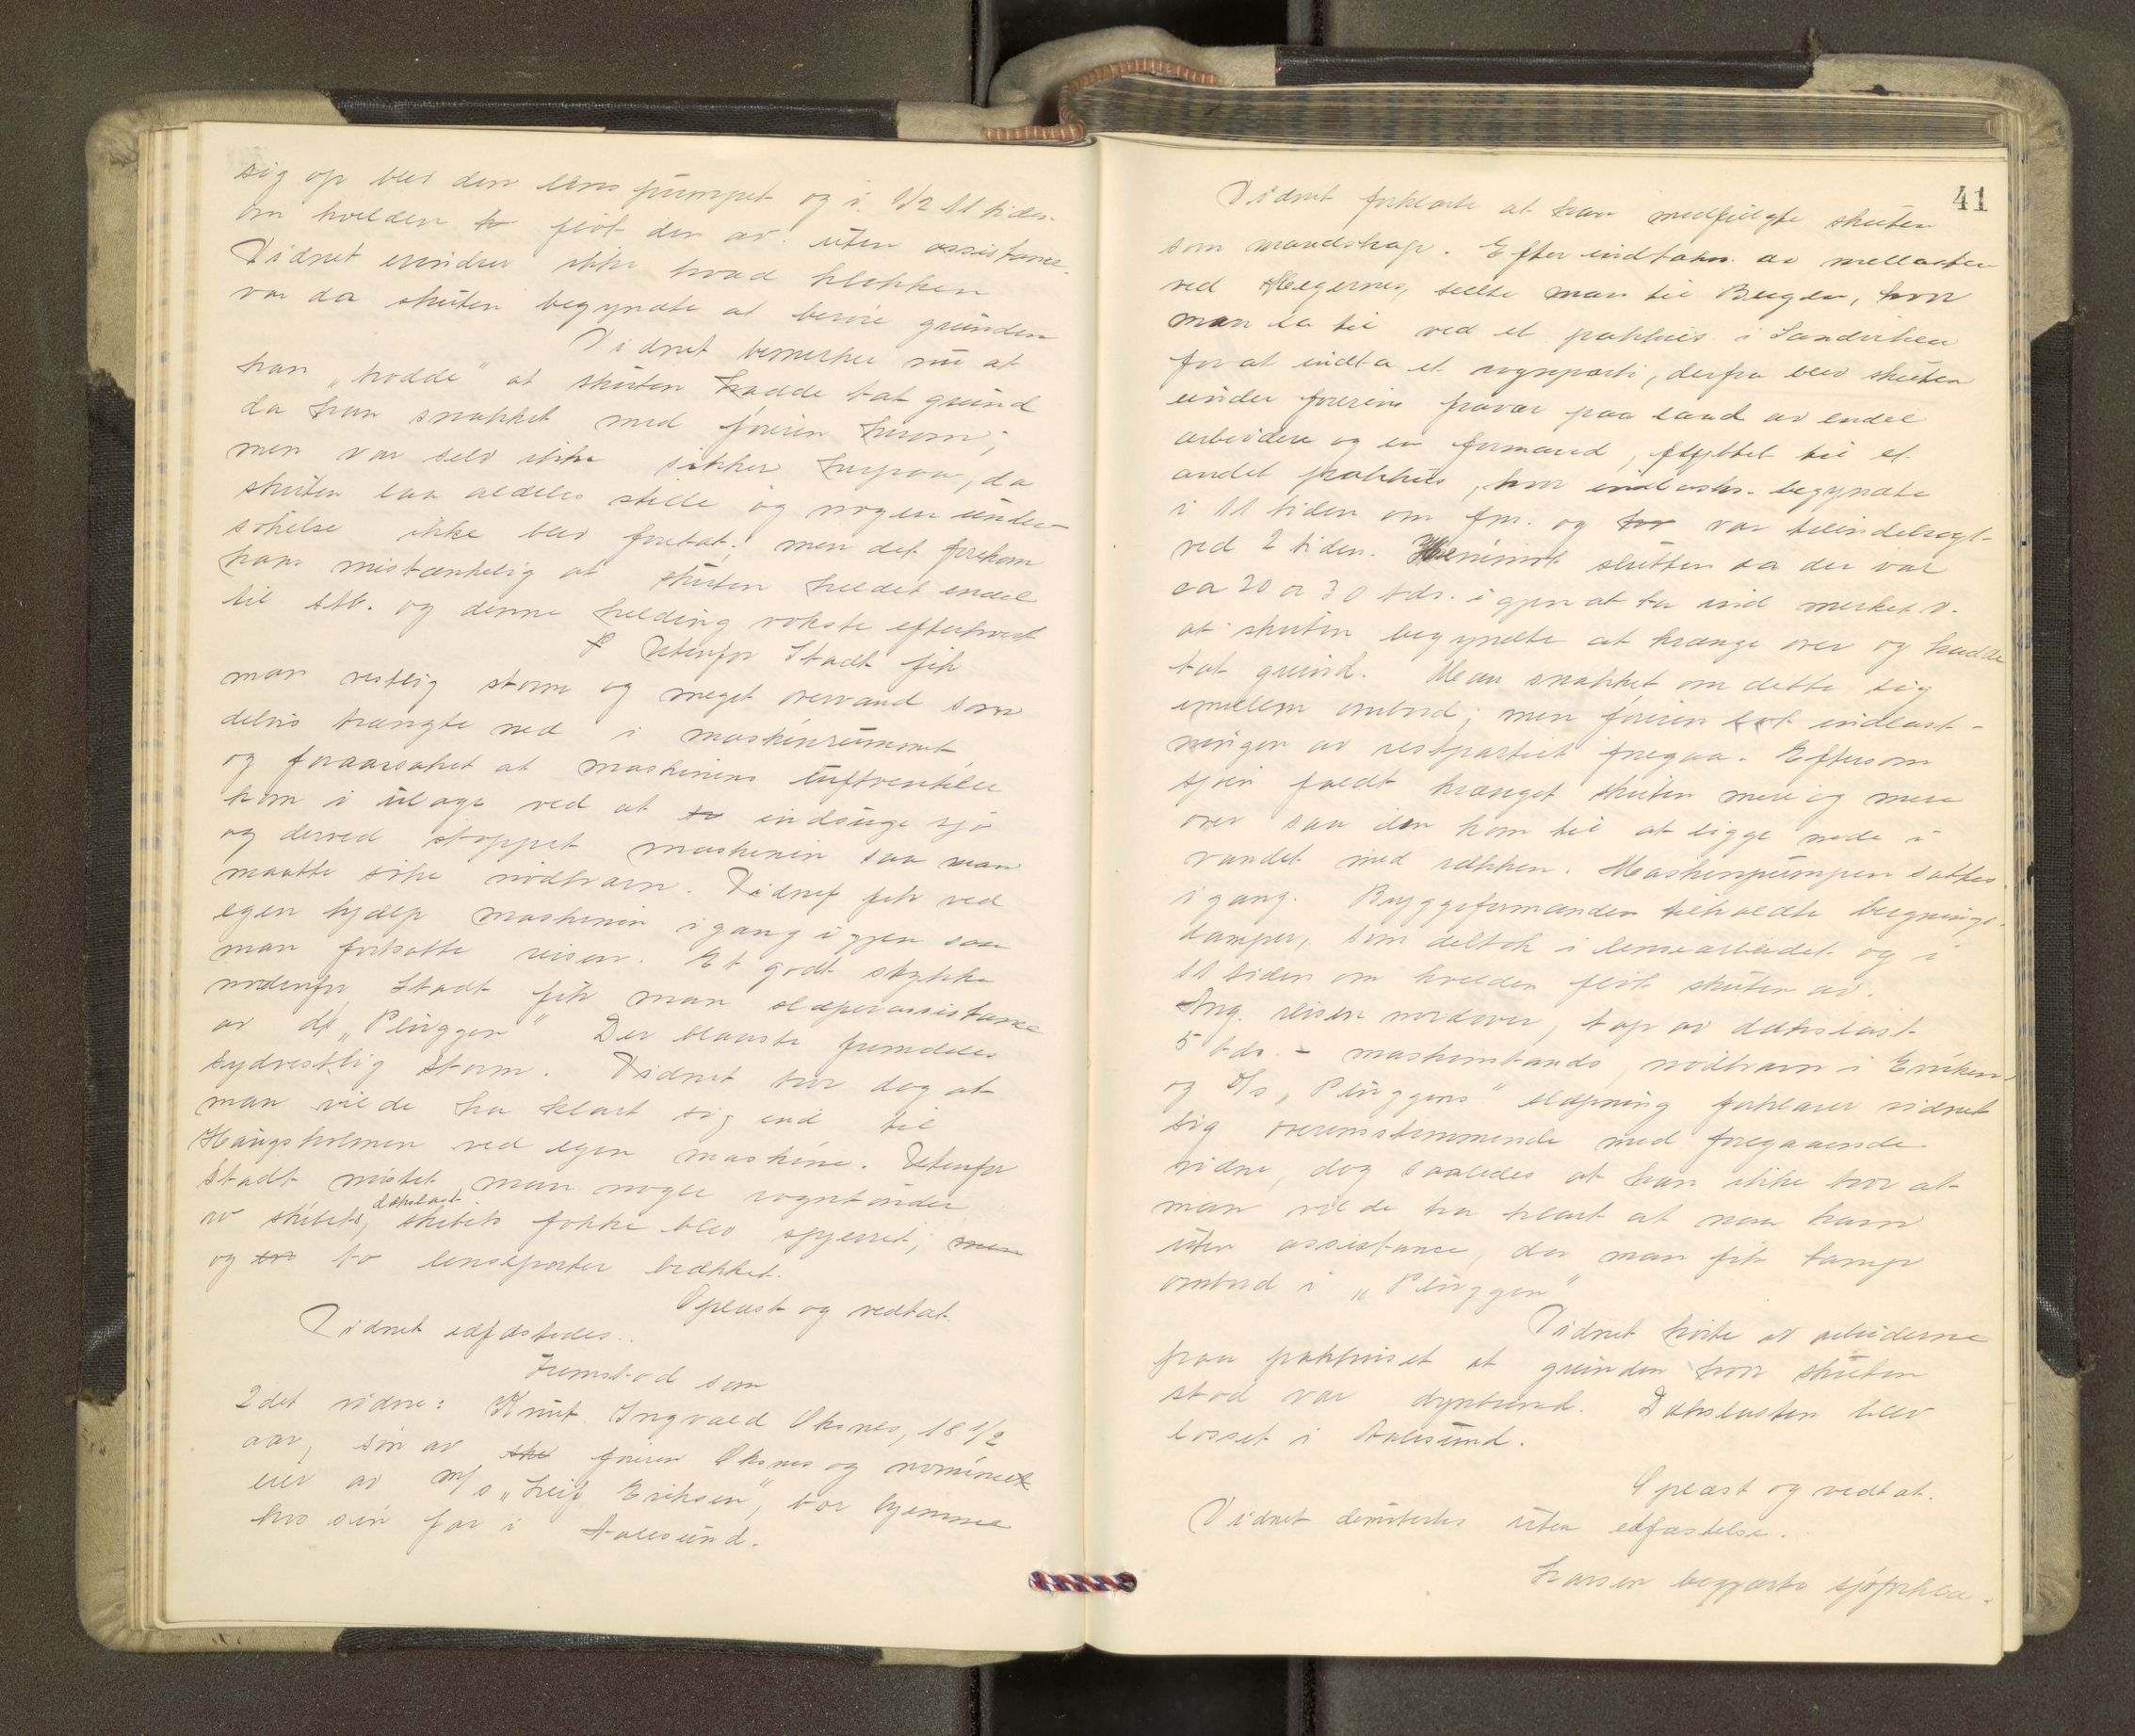 sig op blev den læns pumpet og i 1/2 11 tiden
om kvelden fløt den av uten assistanse.
Vidnet erindrer ikke hvad klokken
var da skuten begyndte at berøre grunden
Vidnet bemerker nu at
han „trodde" at skuten hadde tat grund
da han snakket med føreren herom;
men var selv ikke sikker herpaa, da
skuten laa aldeles stille og nogen under-
søkelse ikke blev foretat; men det forekom
ham mistænkelig at skuten heldet endel
til stb. og denne helding vokste efterhvert
Utenfor Stadt fik
man vestlig storm og meget overvand som
delvis trængte ned i maskinrummet
og foraarsaket at maskinens luftventiler
kom i ulage ved at indsuge sjø
og derved stoppet maskinen saa man
maatte søke nødhavn. Vidnet fik ved
egen hjælp maskinen igang igjen saa
man fortsatte reisen. Et godt stykke
nordenfor Stadt fik man slæpeassistanse
av ds „Pluggen" Der blaaste fremdeles
sydvestlig storm. Vidnet tror dog at
man vilde ha klart sig ind til
Haugsholmen ved egen maskine. Utenfor
Stadt mistet man nogle rogntønder
av skibets dækslast, skibets fokke blev spjerret; men
og to lenseporter brækket.
Oplæst og vedtat.
Vidnet edfæstedes.
Fremstod som
2det vidne: Knut Ingvald Oksnes, 18 1/2
aar, søn av føreren Oksnes og nominel
eier av M/s „Leif Eriksen", bor hjemme
hos sin far i Aalesund.
41
Vidnet forklarte at han medfulgte skuten
som mandskap. Efter indtakn. av mellasten
ved Hegernes, seilte man til Bergen, hvor
man la til ved et pakhus i Sandviken
for at indta et rognparti, derfra blev skuten
under førerens fravær paa land av endel
arbeidere og en formand, flyttet til et
andet pakhus, hvor indlastn. begyndte
i 11 tiden om fm. og var tilendebragt
ved 2 tiden. Henimot slutten da der var
ca 20 a 30 tdr. igjen at ta ind merket v.
at skuten begyndte at krænge over og hadde
tat grund. Man snakket om dette sig
imellem ombord; men føreren lot indlast-
ningen av restpartiet foregaa. Eftersom
sjøen faldt krænget skuten mere og mere
over saa den kom til at ligge nede i
vandet med rækken. Maskinpumpen sattes
igang. Bryggeformanden tilkaldte bergnings-
damper, som deltok i lensearbeidet og i
11 tiden om kvelden fløt skuten av.
Ang. reisen nordover, tap av dækslast
5 tdr. - maskinstands, nødhavn i
og D/s „Pluggens" slæpning forklarer vidnet
sig overensstemmende med foregaaende
vidne, dog saaledes at han ikke tror at
man vilde ha klart at naa havn
uten assistance, da man fik tamp
ombord i „Pluggen"
Vidnet hørte av arbeiderne
paa pakhuset at grunden hvor skuten
stod var dyndbund. Dækslasten blev
losset i Aalesund.
Oplæst og vedtat.
Vidnet dimitertes uten edfæstelse.
Larsen begjærte sjøforkla-